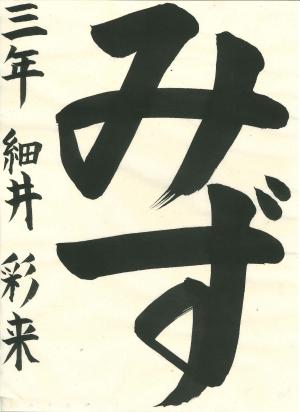 みず
三年 細井 彩来